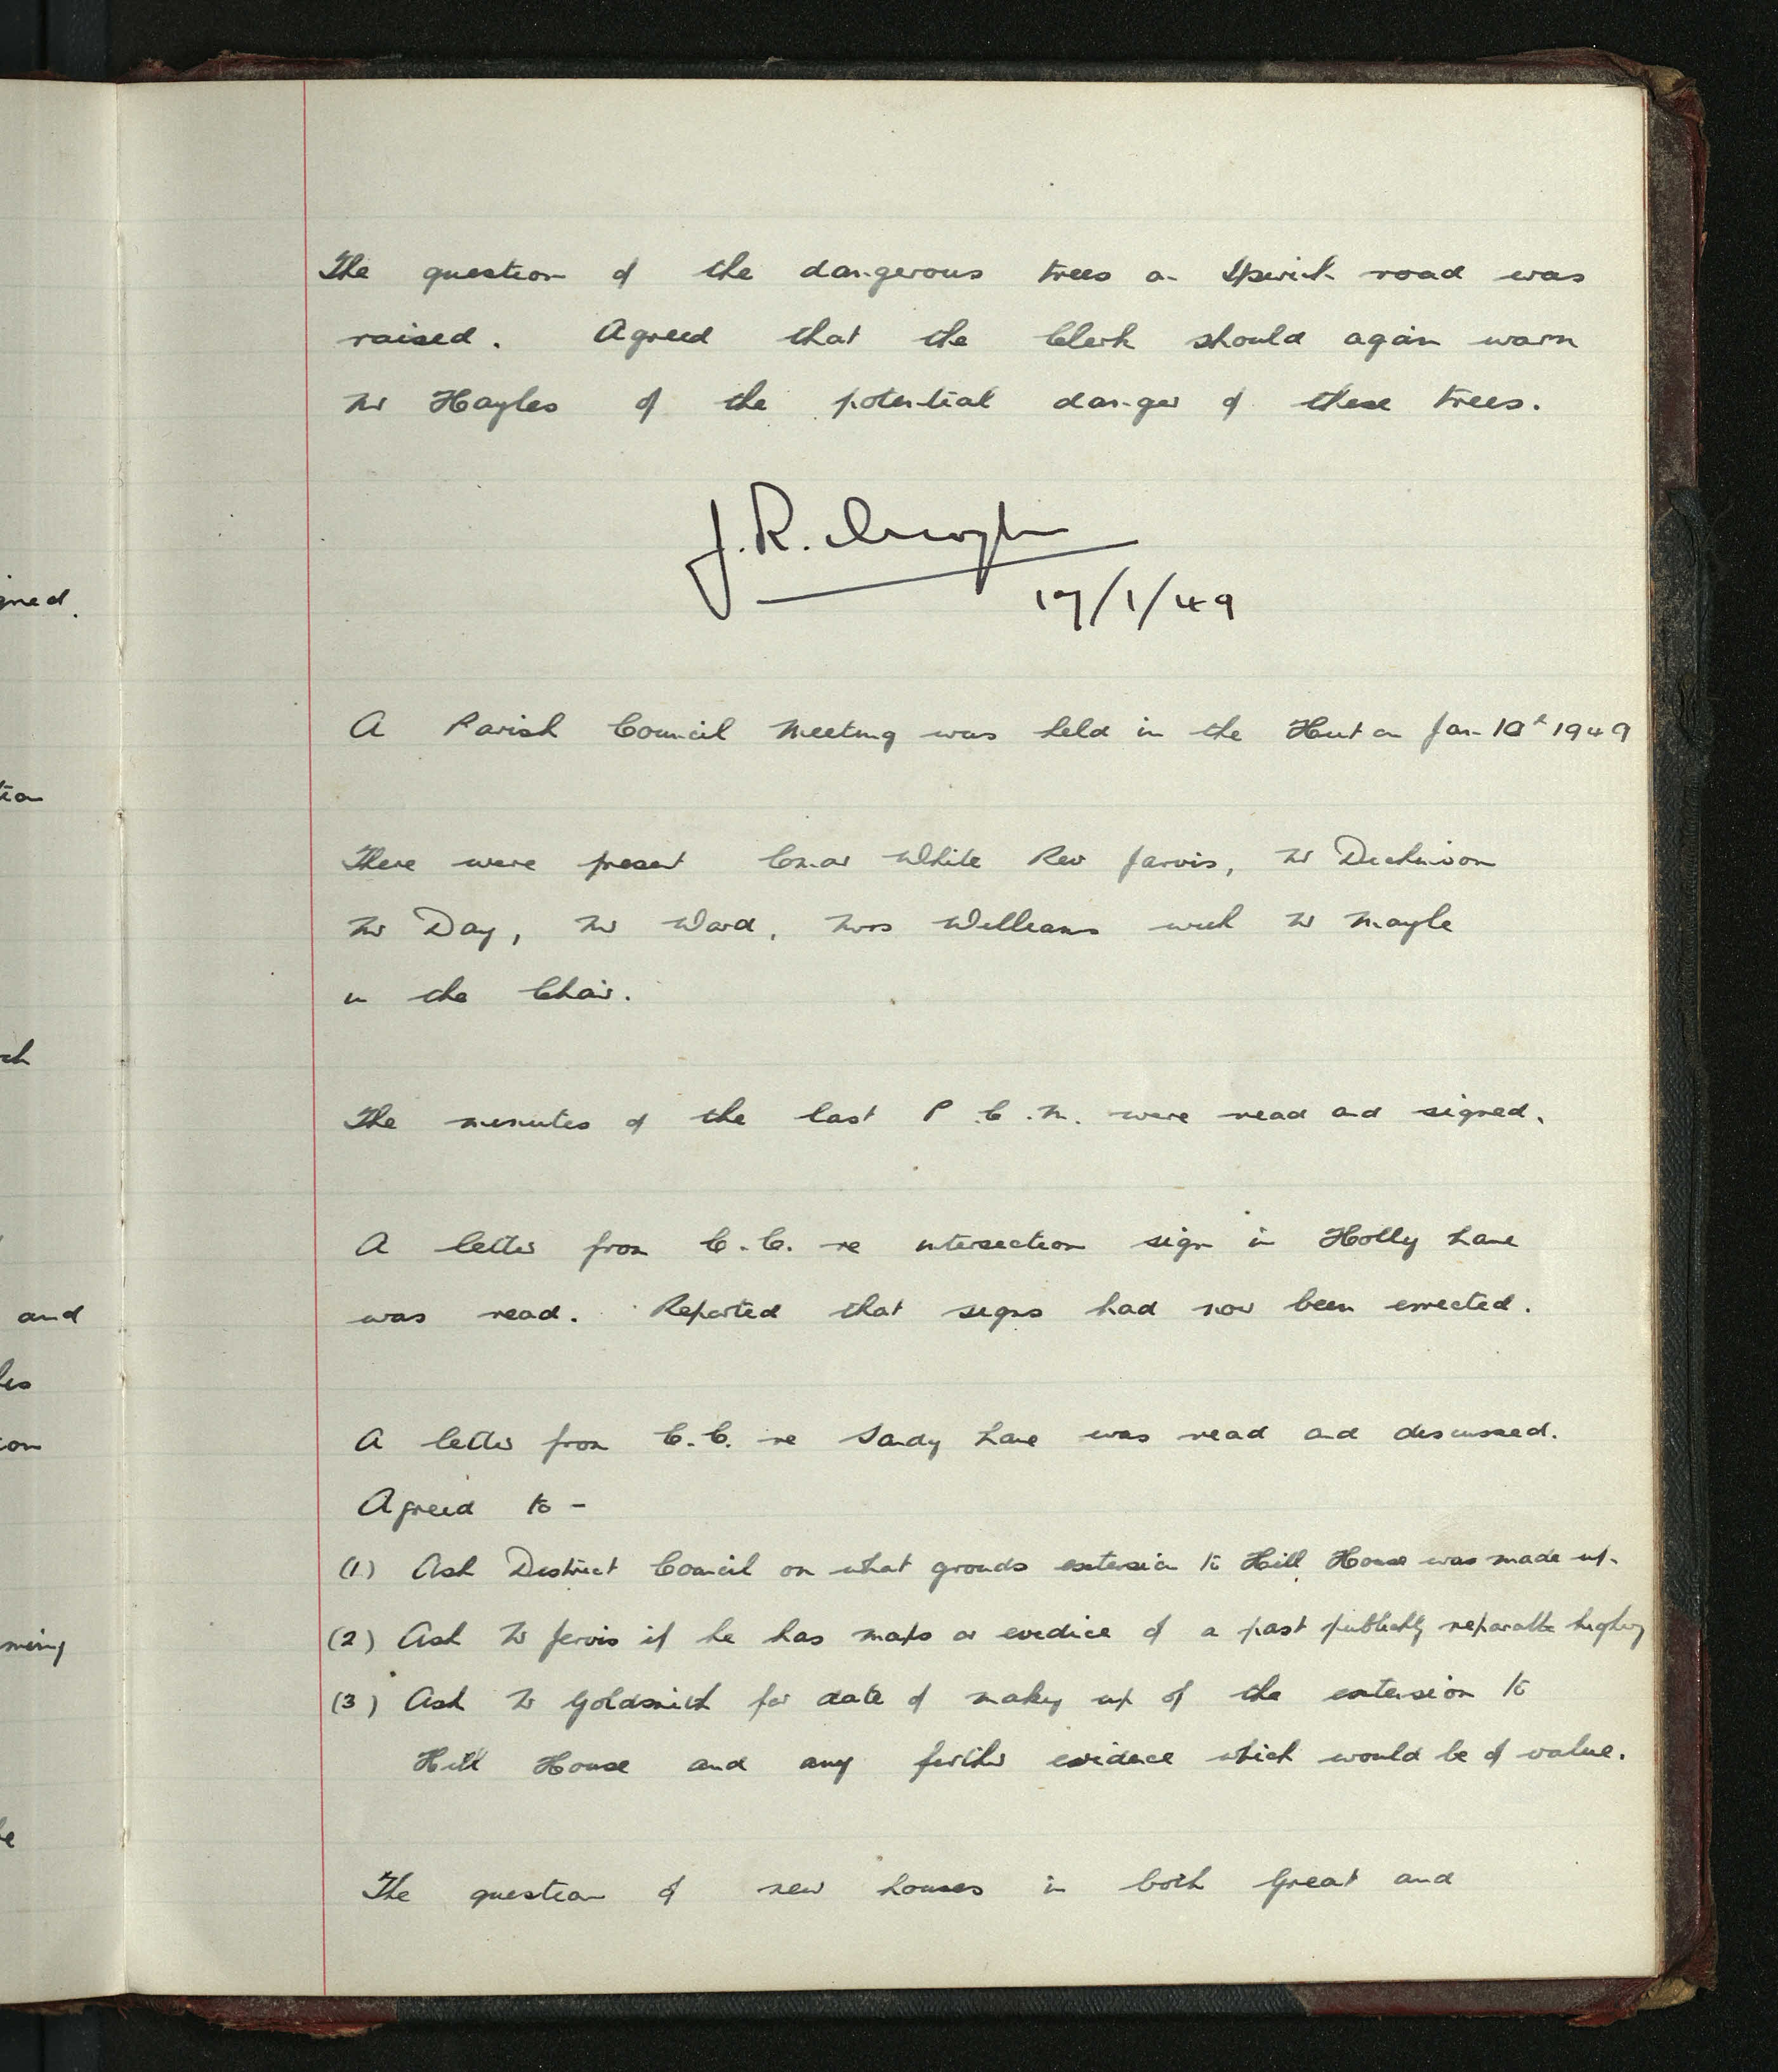 The question of the dangerous trees on Ipswich road was
raised. Agreed that the Clerk should again warn
Mr Hayles of the potential danger of these trees.
J. R.
17/1/49
A Parish Council Meeting was held in the Hut on Jan 10th 1949
There were present Cmdr White Rev Jarvis, Mr Dickinson
Mr Day, Mr Ward, Mrs Williams with Mr Mayle
in the Chair.
The minutes of the last P.C.M. were read and signed.
A letter from C.C. re intersection sign in Holly Lane
was read. Reported that signs had now been errected.
A letter from C.C. re Sandy Lane was read and discussed.
Agreed to -
(1) Ask District Council on what grounds extension to Hill House was made up.
(2) Ask Mr Jervis if he has maps or evidice of a past publically reparable highway
(3) Ask Mr Goldsmith for date of making up of the extension to
Hill House and any further evidence which would be of value.
The question of new houses in both Great and
gned.
and